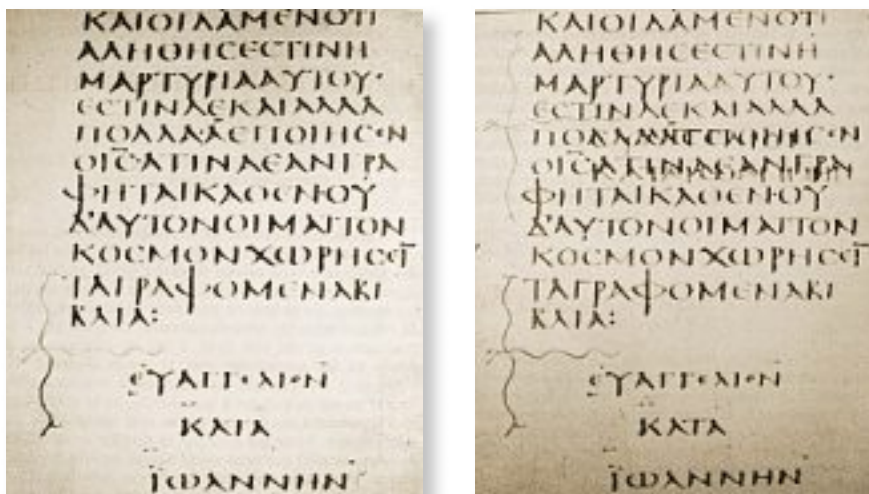 ΚΑΙΟΙΔΑΜΕΝΟΤΙ
ΑΛΗΘΗCΕCΤΙΝΗ
ΜΑΡΤΥΡΙΑΑΥΤΟΥ·
ΕCΤΙΝΔΕΚΑΙΑΛΛΑ
ΠΟΛΛΑΑΕΠΟΙΗCΕΝ
ΟΙ̅C̅ΑΤΙΝΑΕΑΝΓΡΑ
ΦΗΤΑΙΚΑΘΕΝΟΥ
Δ'ΑΥΤΟΝΟΙΜΑΙΤΟΝ
ΚΟCΜΟΝΧΩΡΗCΕΙ
ΤΑΓΡΑΦΟΜΕΝΑΒΙ
ΒΛΙΑ:
ΕΥΑΓΓΕΛΙΟΝ
ΚΑΤΑ
ΪΩΑΝΝΗΝ
ΚΑΙΟΙΔΑΜΕΝΟΤΙ
ΑΛΗΘΗCΕCΤΙΝΗ
ΜΑΡΤΥΡΙΑΑΥΤΟΥ·
ΕCΤΙΝΔΕΚΑΙΑΛΛΑ
ΟΙ̅C̅ΑΤΙΝΑΕΑΝΓΡΑ
ΦΗΤΑΙΚΑΘΕΝΟΥ
Δ'ΑΥΤΟΝΟΙΜΑΙΤΟΝ
ΚΟCΜΟΝΧΩΡΗCΕΙ
ΤΑΓΡΑΦΟΜΕΝΑΒΙ
ΒΛΙΑ:
ΕΥΑΓΓΕΛΙΟΝ
ΚΑΤΑ
ΪΩΑΝΝΗΝ